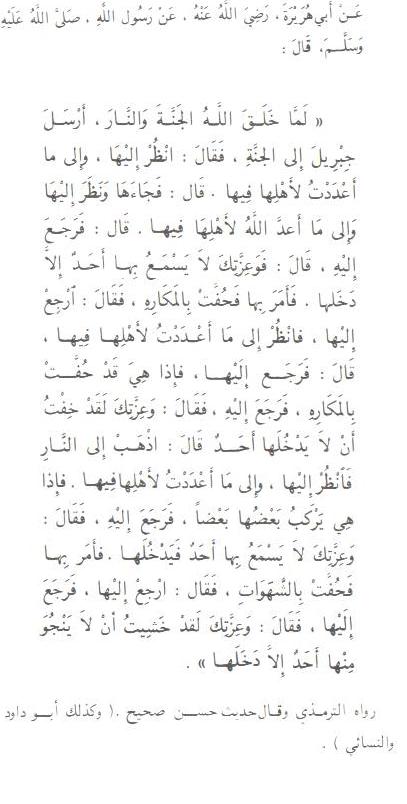 عَنْ أَبي هُرَيْرَةَ ، رَضِيَ اللَّهُ عَنْهُ ، عَنْ رَسُولِ اللَّهِ ، صَلَّى اللَّهُ عَلَيْهِ
وَسَلَّمَ، قَالَ :
« لَمَّا خَلَقَ اللَّهُ الجَنَّةَ وَالنَّارَ ، أَرْسَلَ
جِبْرِيلَ إلى الجَنَّةِ ، فَقَالَ : انْظُرْ إِلَيْهَا ، وإلى ما
أَعْدَدْتُ لأَهْلِها فِيها . قال : فَجَاءَهَا وَنَظَرَ إِلَيْهَا
وَإلى مَا أَعدَّ اللَّهُ لأَهْلِهَا فِيهـا . قال : فَرَجَعَ
إِلَيْهِ ، قَالَ : فَوَعِزَّتِكَ لاَ يَسْمَعُ بِهـا أَحَـدٌ إِلاَّ
دَخَلَها . فَأَمَرَ بِها فَحُفَّتْ بِالمَكَارِهِ ، فَقَالَ : ارْجِعْ
إِليْها ، فانْظُرْ إلى مَا أَعْـدَدْتُ لأَهْلِهـا فِيهـا ،
قَالَ : فَرَجَـعَ إِلَيْهـا ، فإِذا هِيَ قَدْ حُفَّـتْ
بِالمَكَارِهِ ، فَرَجَعَ إِلَيْهِ ، فَقَالَ : وَعِزَّتِكَ لَقَدْ خِفْتُ
أَنْ لاَ يَدْخُلَها أَحَـدٌ قَالَ : اذْهَبْ إلى النَّارِ
فَانْظُرْ إِلَيْها ، وإلى مَا أَعْدَدْتُ لأَهْلِها فِيهـا . فإِذا
هِي يَرْكَبُ بَعْضُها بَعْضاً ، فَرَجَعَ إِلَيْهِ ، فَقَالَ :
وَعِزَّتِكَ لاَ يَسْمَعُ بِها أَحَدٌ فَيَدْخُلَهـا . فأَمَر بِهـا
فَحُفَّتْ بِالشَّهَوَاتِ ، فَقَال : ارْجِعْ إِلَيْها ، فَرَجَعَ
إِلَيْها ، فَقَالَ : وَعِزَّتِكَ لَقَدْ خَشِيتُ أَنْ لاَ يَنْجُوَ
مِنْها أَحَدٌ إِلاَّ دَخَلَهـا » .
رواه الترمـذي وقـال حديث حســن صحيح .( وكذلك أبــو داود
والنسائي ) .